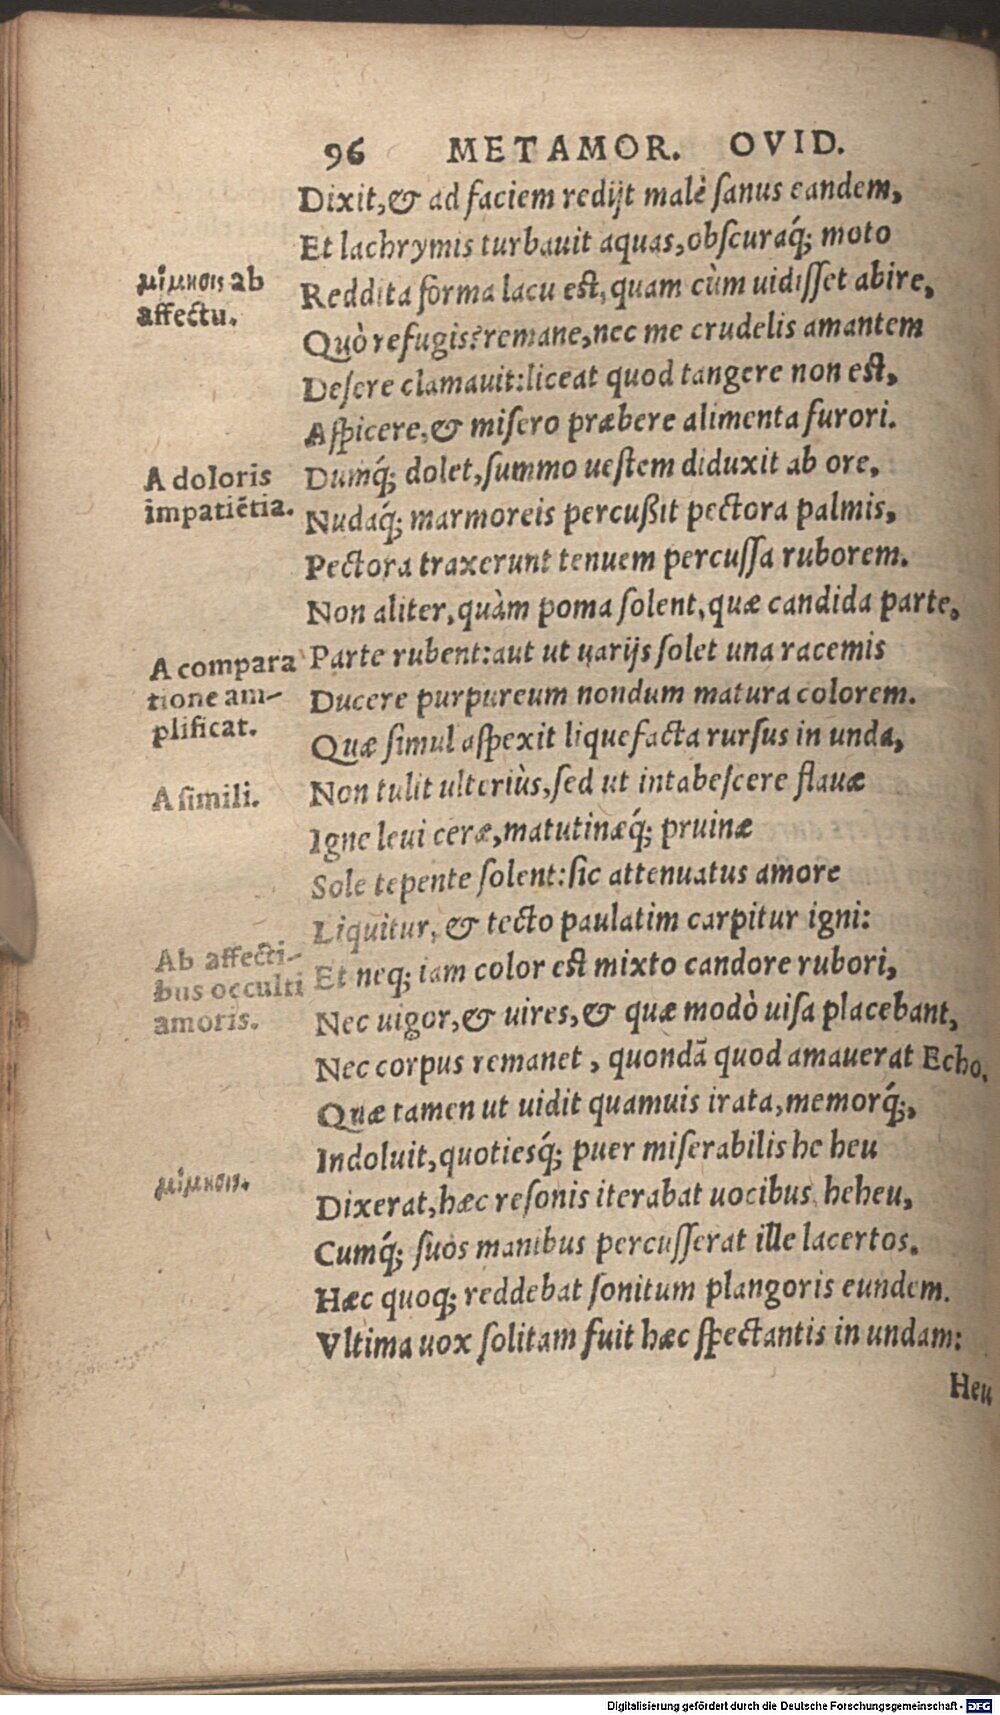 96 METAMOR. OVID.
Dixit,& ad faciem redijt malè ſanus eandem,
Et lachrymis turbauit aquas,obſcuraq́; moto
μίμησις ab
affectu.
Reddita forma lacu eſt,quam cùm uidiſſet abire,
Quò refugis?remane,nec me crudelis amantem
Deſere clamauit:liceat quod tangere non eſt,
Aſpicere,& miſero præbere alimenta furori.
A doloris
impatiẽtia.
Dumq́; dolet,ſummo ueſtem diduxit ab ore,
Nudaq́; marmoreis percußit pectora palmis,
Pectora traxerunt tenuem percuſſa ruborem.
Non aliter,quàm poma ſolent,quæ candida parte,
A compara
tione am-
plificat.
Parte rubent:aut ut uarijs ſolet una racemis
Ducere purpureum nondum matura colorem.
Quæ ſimul aſpexit liquefacta rurſus in unda,
A ſimili.
Non tulit ulteriùs,ſed ut intabeſcere flauæ
Igne leui ceræ,matutinæq́; pruinæ
Sole tepente ſolent:ſic attenuatus amore
Liquitur, & tecto paulatim carpitur igni:
Ab affecti-
bus occulti
amoris.
Et neq; iam color eſt mixto candore rubori,
Nec uigor,& uires,& quæ modò uiſa placebant,
Nec corpus remanet, quondã quod amauerat Echo.
Quæ tamen ut uidit quamuis irata,memorq́;,
Indoluit,quotiesq́; puer miſerabilis he heu
μίμησις.
Dixerat,hæc reſonis iterabat uocibus heheu,
Cumq́; ſuos manibus percuſſerat ille lacertos.
Hæc quoq; reddebat ſonitum plangoris eundem.
Vltima uox ſolitam fuit hæc ſpectantis in undam:
Heu
Digitalisierung gefördert durch die Deutsche Forschungsgemeinschaft - DFG